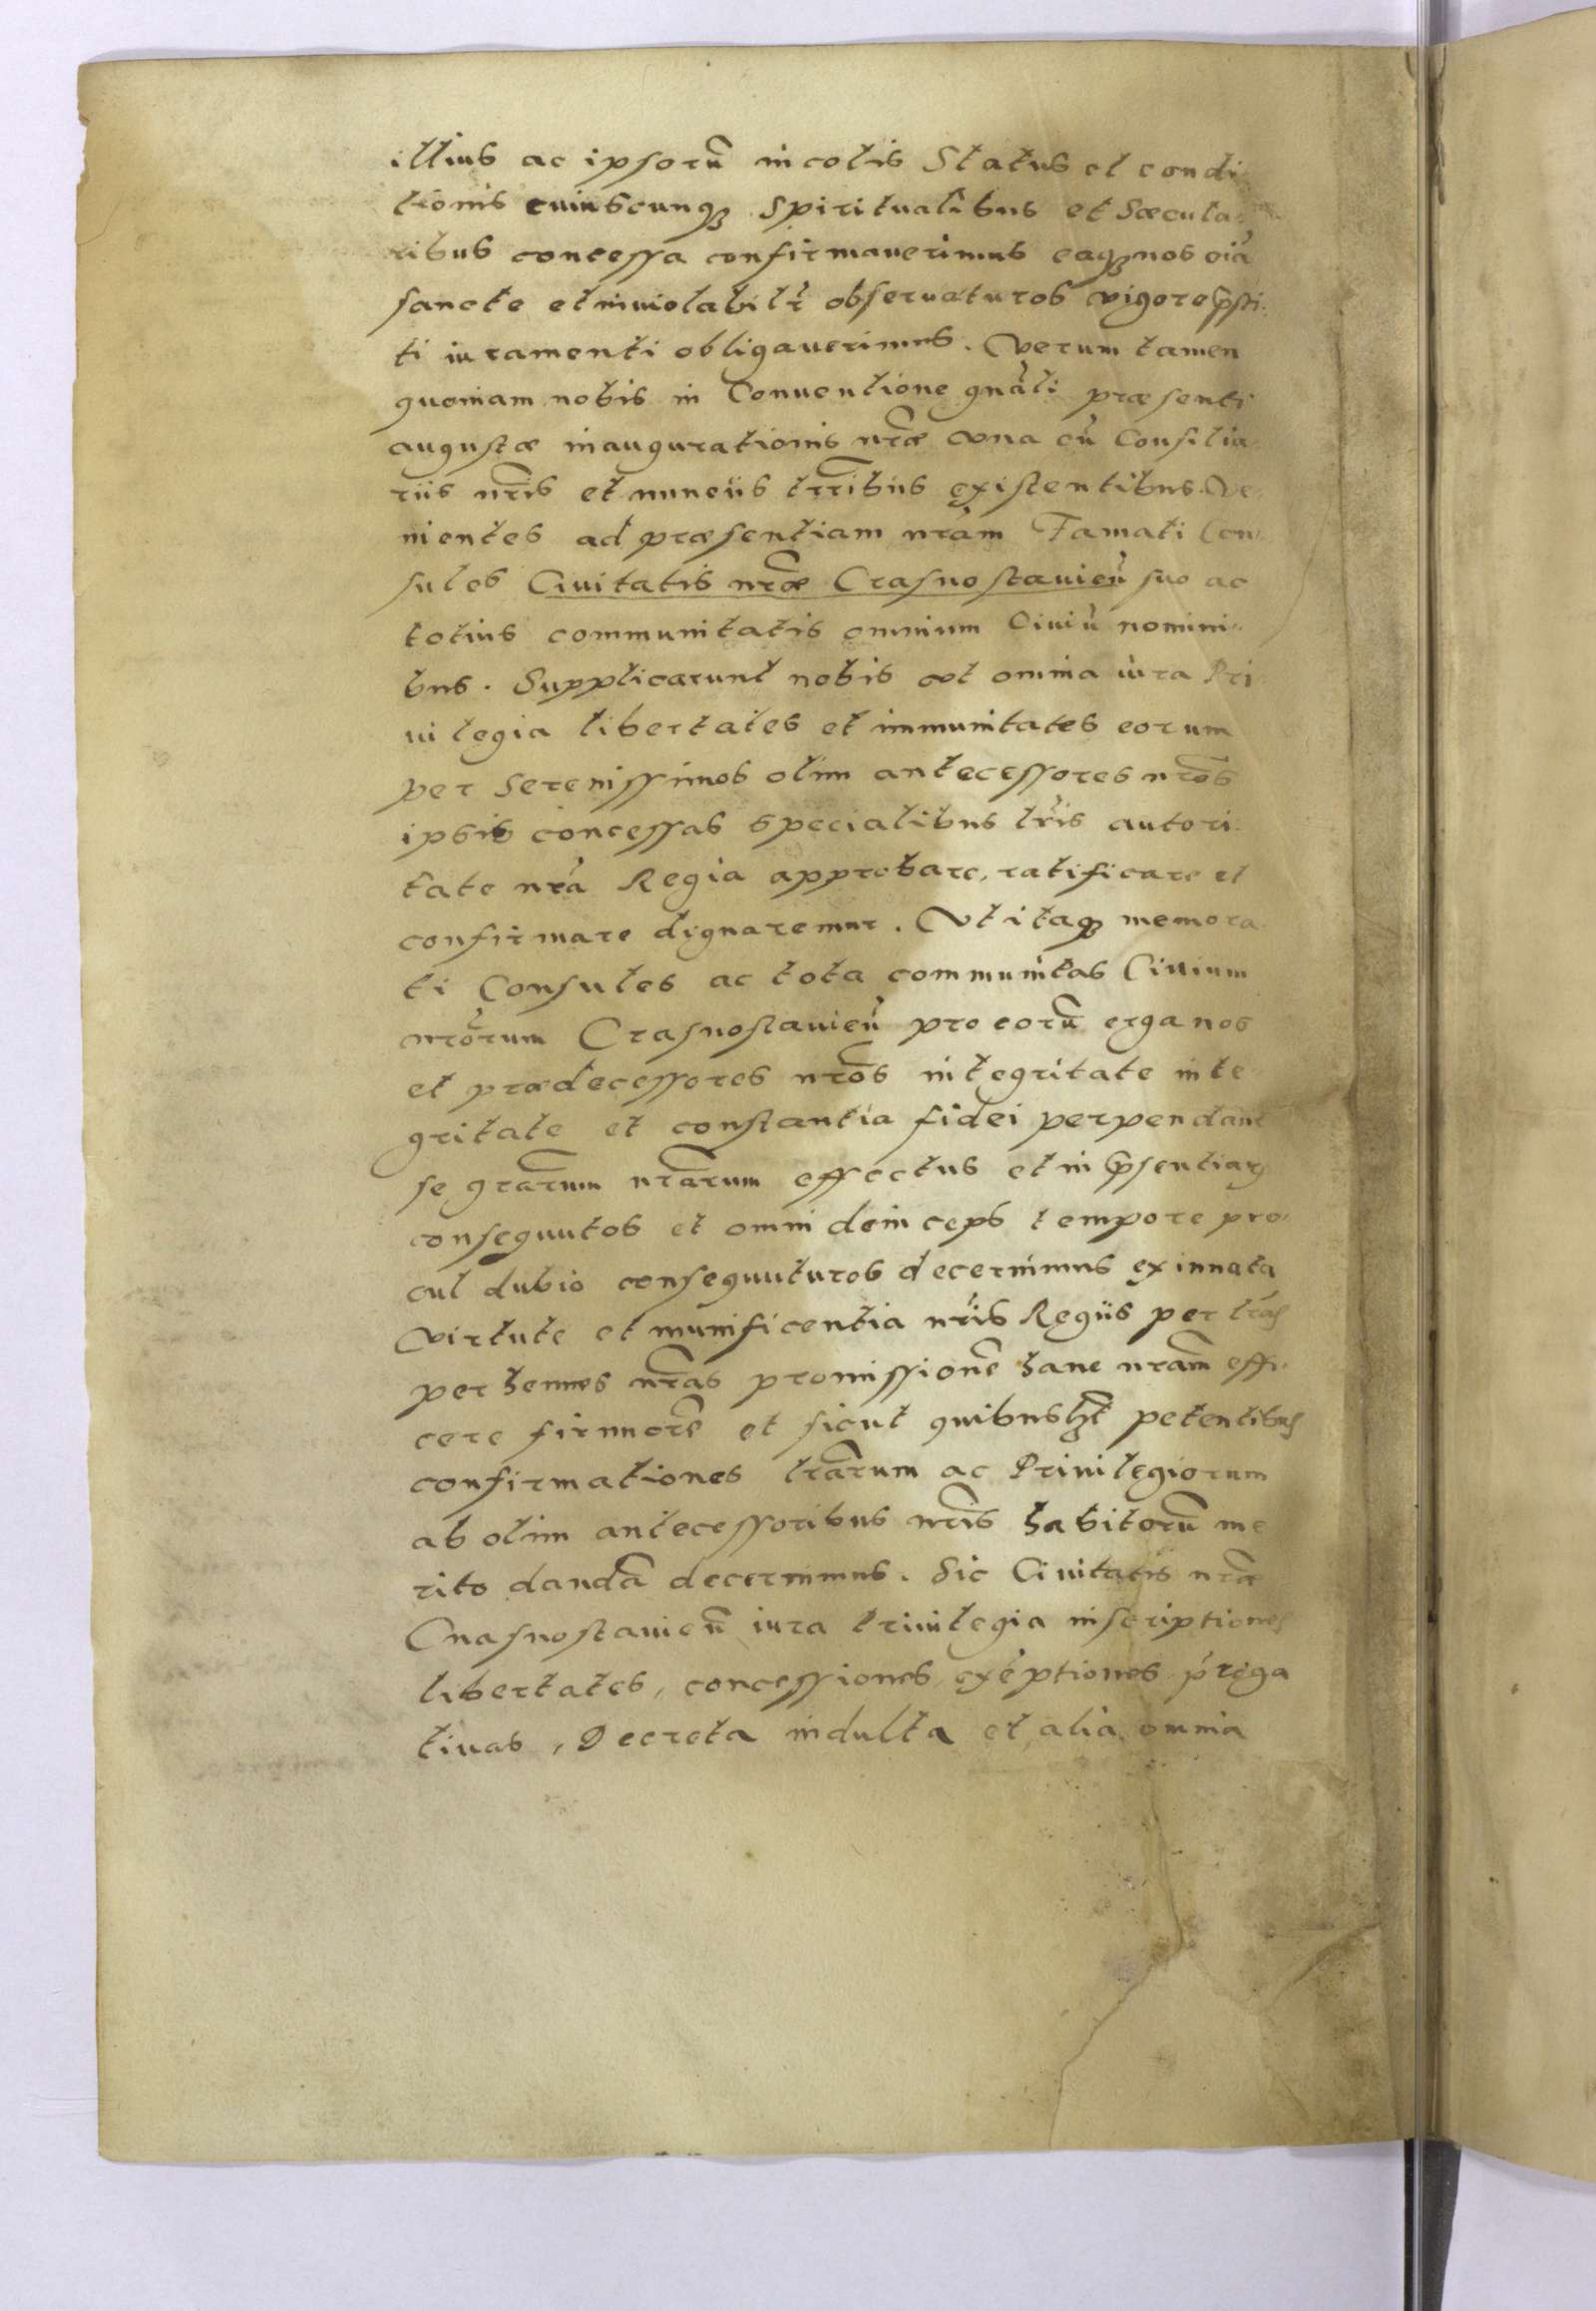 illius ac ipsorū incolis Status et condi
tionis cuiuscunqꝫ Spiritualibus et Sæcula-
ribus concessa confirmauerimus eaqꝫ nos oīa
sancte et inuiolabilr̄ obseruaturos vigore p̄sti-
ti iuramenti obligauerimus. Verum tamen
quoniam nobis in Conuentione gn̄ali præsenti
augustæ inaugurationis nr̄æ vna cū Consilia-
riis nr̄is et nunciis tr̄ribus existentibus. Ve-
nientes ad præsentiam nr̄am Famati Con-
sules Ciuitatis nr̄æ Crasnostauieñ suo ac
totius communitatis omnium Ciuiū nomini-
bus. Supplicarunt nobis vt omnia iura Pri
uilegia libertates et immunitates eorum
per Serenissimos olim antecessores nr̄os
ipsis concessas specialibus lr̄is autori-
tate nr̄a Regia approbare, ratificare et
confirmare dignaremur. Vt itaqꝫ memora
ti Consules ac tota communitas Ciuium
nr̄orum Crasnostauieñ pro eorū erga nos
et prædecessores nr̄os integritate inte-
gritate et constantia fidei perpendant
se gr̄arum nr̄arum effectus et in p̄sentiaꝝ
consequutos et omni deinceps tempore pro-
cul dubio consequuturos decernimus ex innata
virtute et munificentia nr̄is Regiis per lr̄as
perhennes nr̄as promissionē hanc nr̄am effi-
cere firmiorē et sicut quibuslꝫt petentibus
confirmationes lr̄arum ac Priuilegiorum
ab olim antecessoribus nr̄is habitorū me
rito dandā decernimus. Sic Ciuitatis nr̄æ
Cnasnostauieñ iura Priuilegia inscriptiones
libertates, concessiones, exēptiones p̄roga
tiuas, Decreta indulta et alia omnia